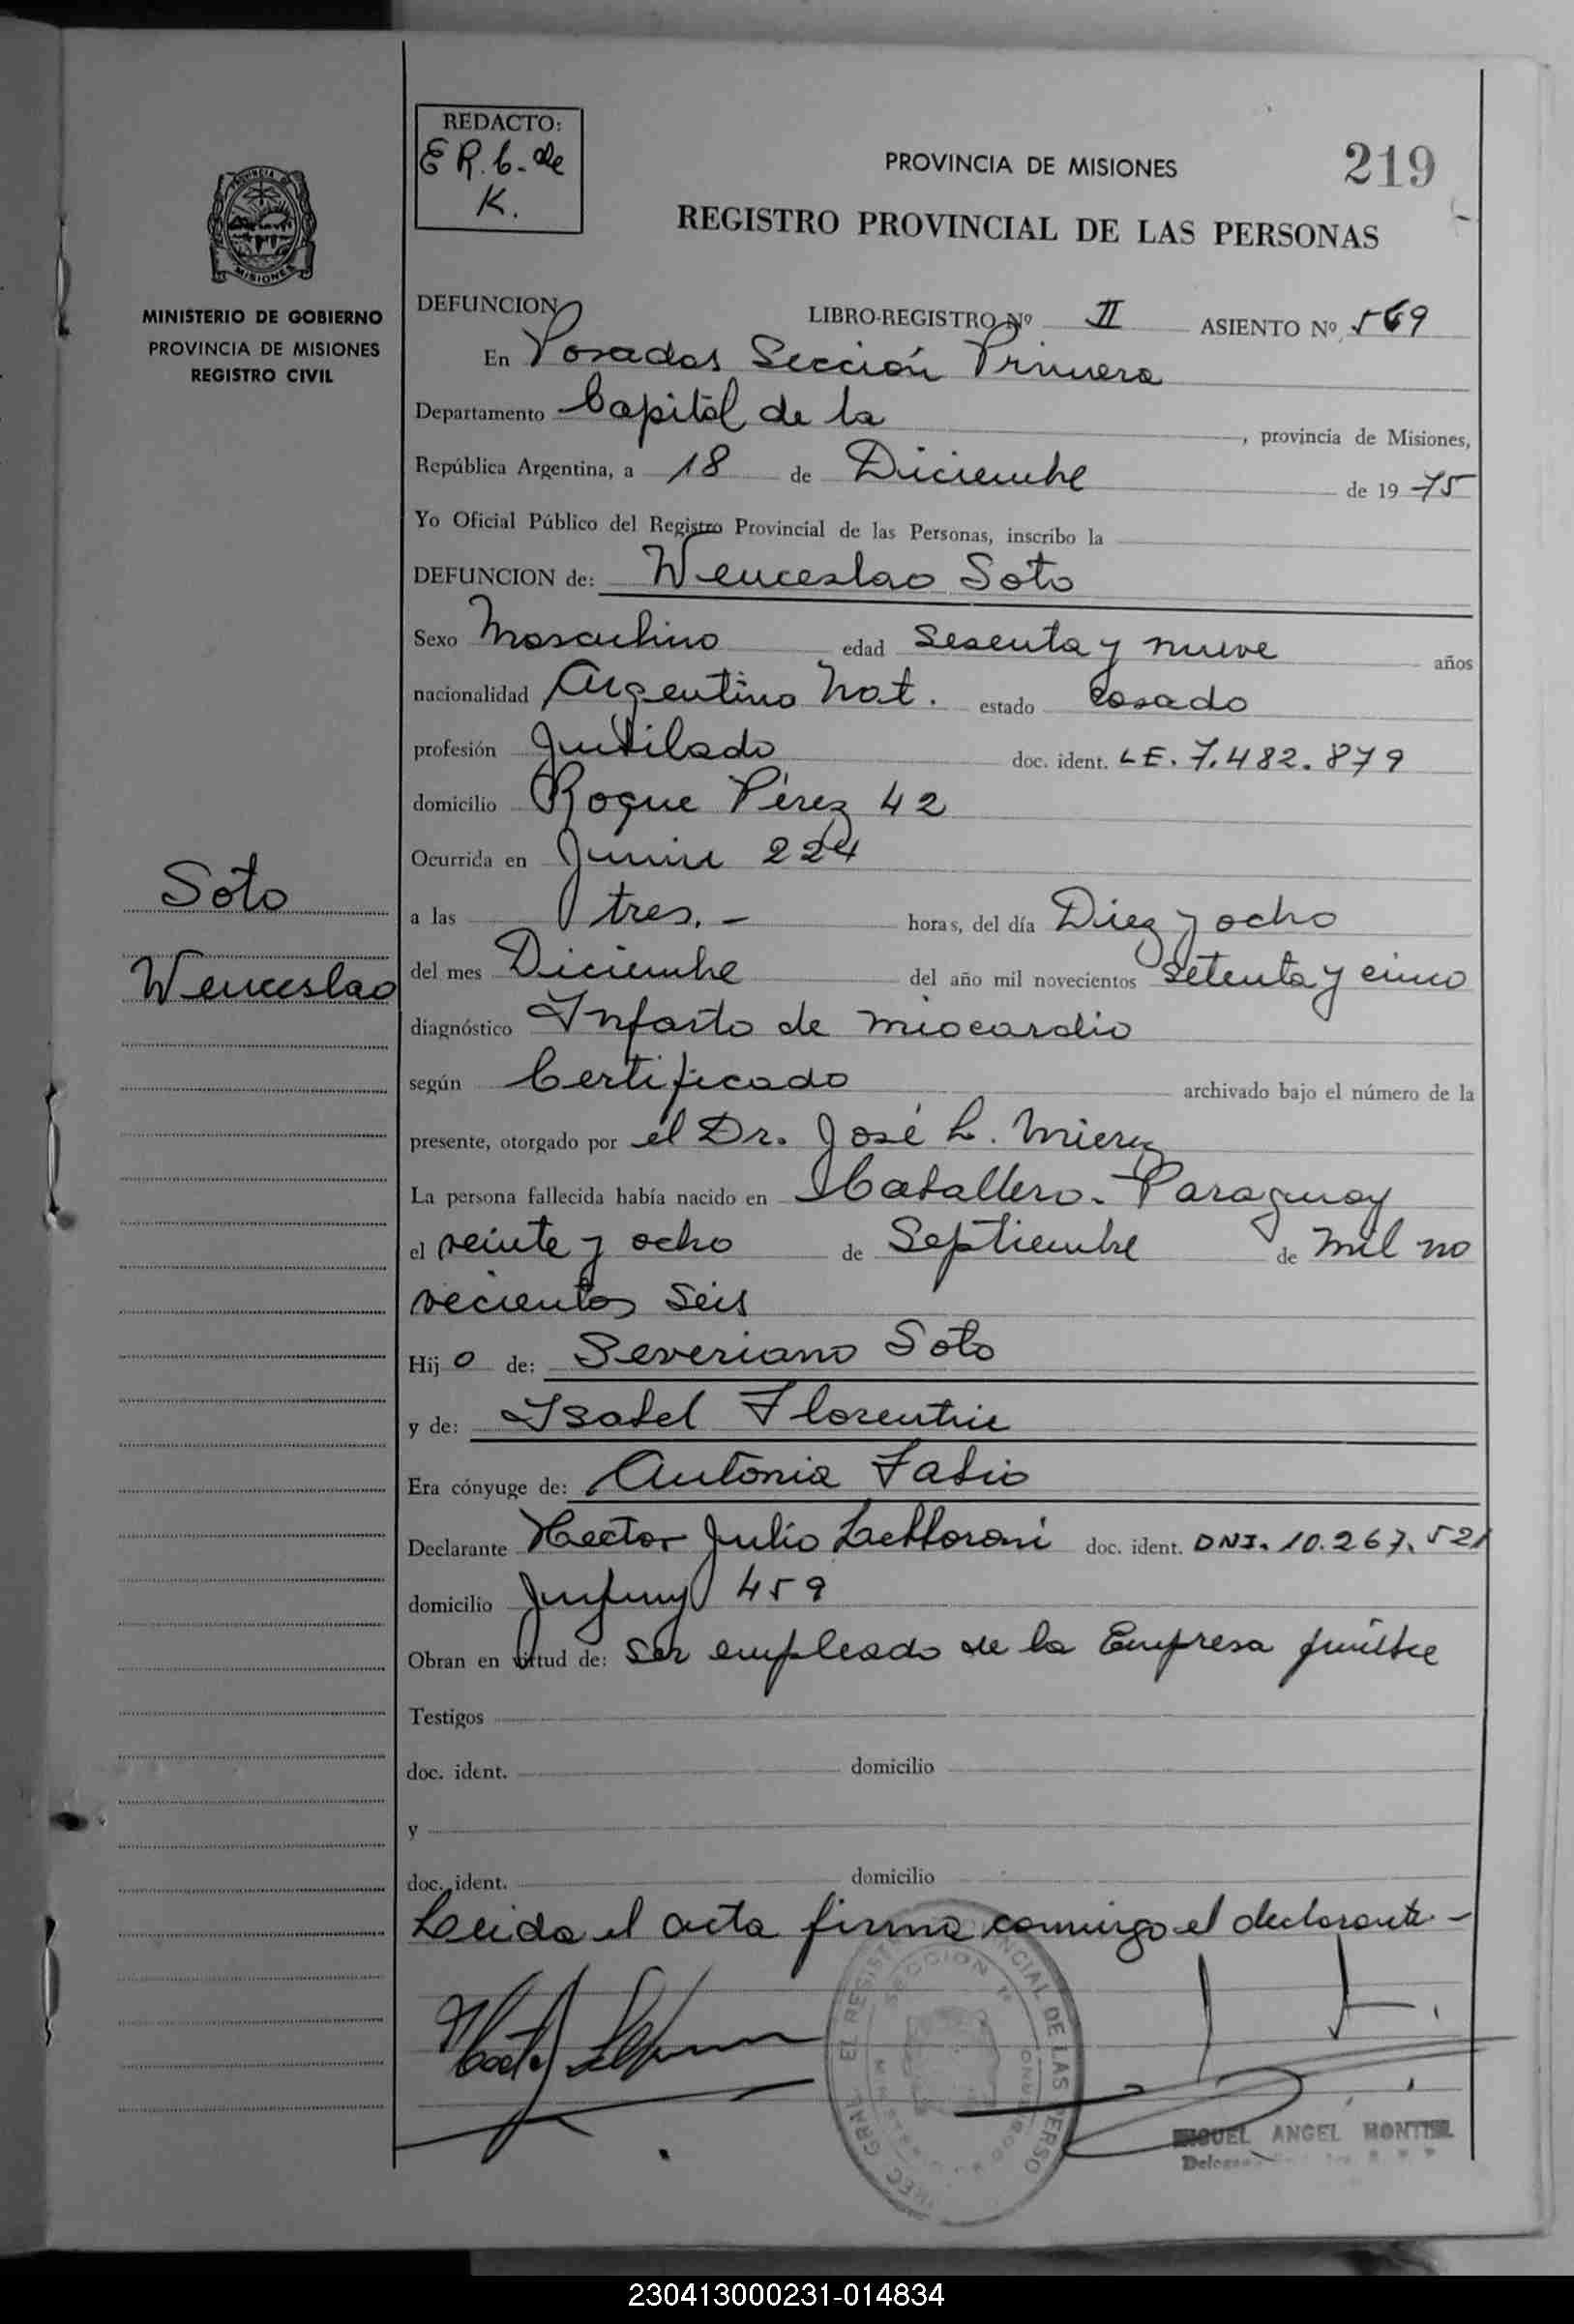 REDACTO:
E R. C. de
K.
PROVINCIA DE MISIONES
219
REGISTRO PROVINCIAL DE LAS PERSONAS
MINISTERIO DE GOBIERNO
PROVINCIA DE MISIONES
REGISTRO CIVIL
DEFUNCION
LIBRO-REGISTRO Nº II ASIENTO Nº 569
En Posadas Sección Primera
Departamento Capital de la , provincia de Misiones,
República Argentina, a 18 de Diciembre de 19 75
Yo Oficial Público del Registro Provincial de las Personas, inscribo la
DEFUNCION de: Wenceslao Soto
Sexo Masculino edad Sesenta y nueve años
nacionalidad Argentino Nat. estado Casado
profesión Jubilado doc. ident. LE. 7.482.879
domicilio Roque Pérez 42
Ocurrida en Junin 224
Soto
a las tres.- horas, del día Diez y ocho
Wenceslao
del mes Diciembre del año mil novecientos Setenta y cinco
diagnóstico Infarto de miocardio
según Certificado archivado bajo el número de la
presente, otorgado por el Dr. José L. Mierez
La persona fallecida había nacido en Caballero - Paraguay
el veinte y ocho de Septiembre de mil no
vecientos seis
Hij o de: Severiano Soto
y de: Isabel Florentin
Era cónyuge de: Antonia Fabio
Declarante Hector Julio doc. ident. DNI. 10.267.521
domicilio Jujuy 459
Obran en virtud de: Ser empleado de la Empresa fúnebre
Testigos
doc. ident. domicilio
y
doc. ident. domicilio
Leida el acta firma conmigo el declarante -
MIGUEL ANGEL MONTIEL
230413000231-014834